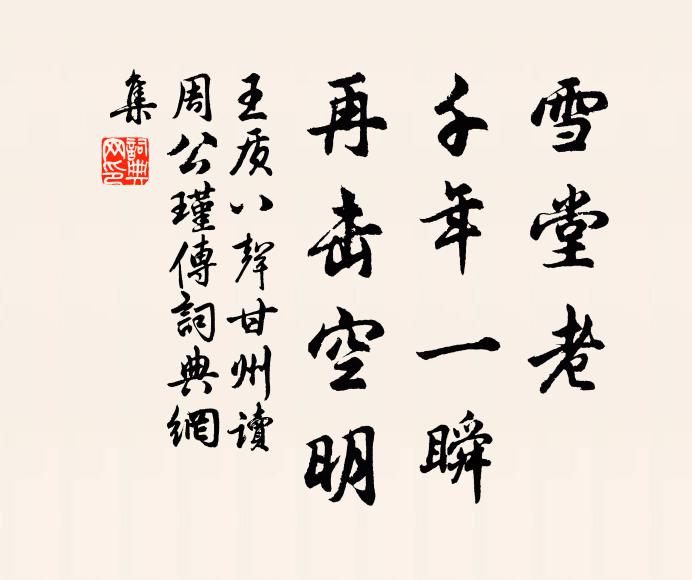 雪堂老
千年一瞬
再击空明
王质八聲甘州读
周公瑾傳詞典網
集
詞典网印